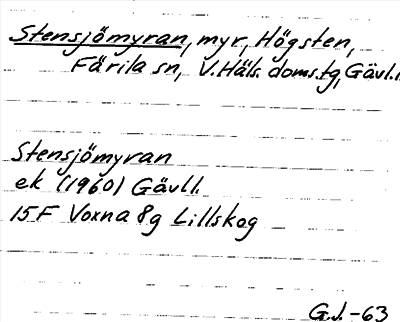 Stensjömyran, myr, Högsten,
Färila sn, V. Häls. doms.tg, Gävl.l.
Stensjömyran
ek (1960) Gävll.
15F Voxna 8g Lillskog
G.J.-63